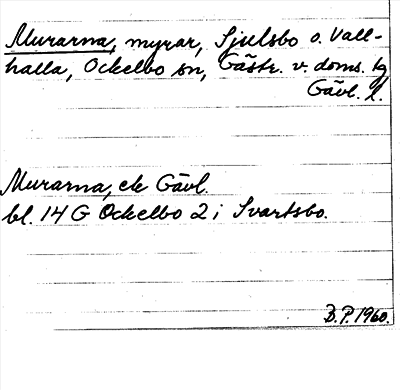 Murarna, myrar, Sjselsbo o. Vall-
halla, Ockelbo sn, Gästr. v. doms. tg
Gävl. l.
Murarna, ek Gävl.
bl. 14 G Ockelbo 2 i Svartsbo.
B.P. 1960.